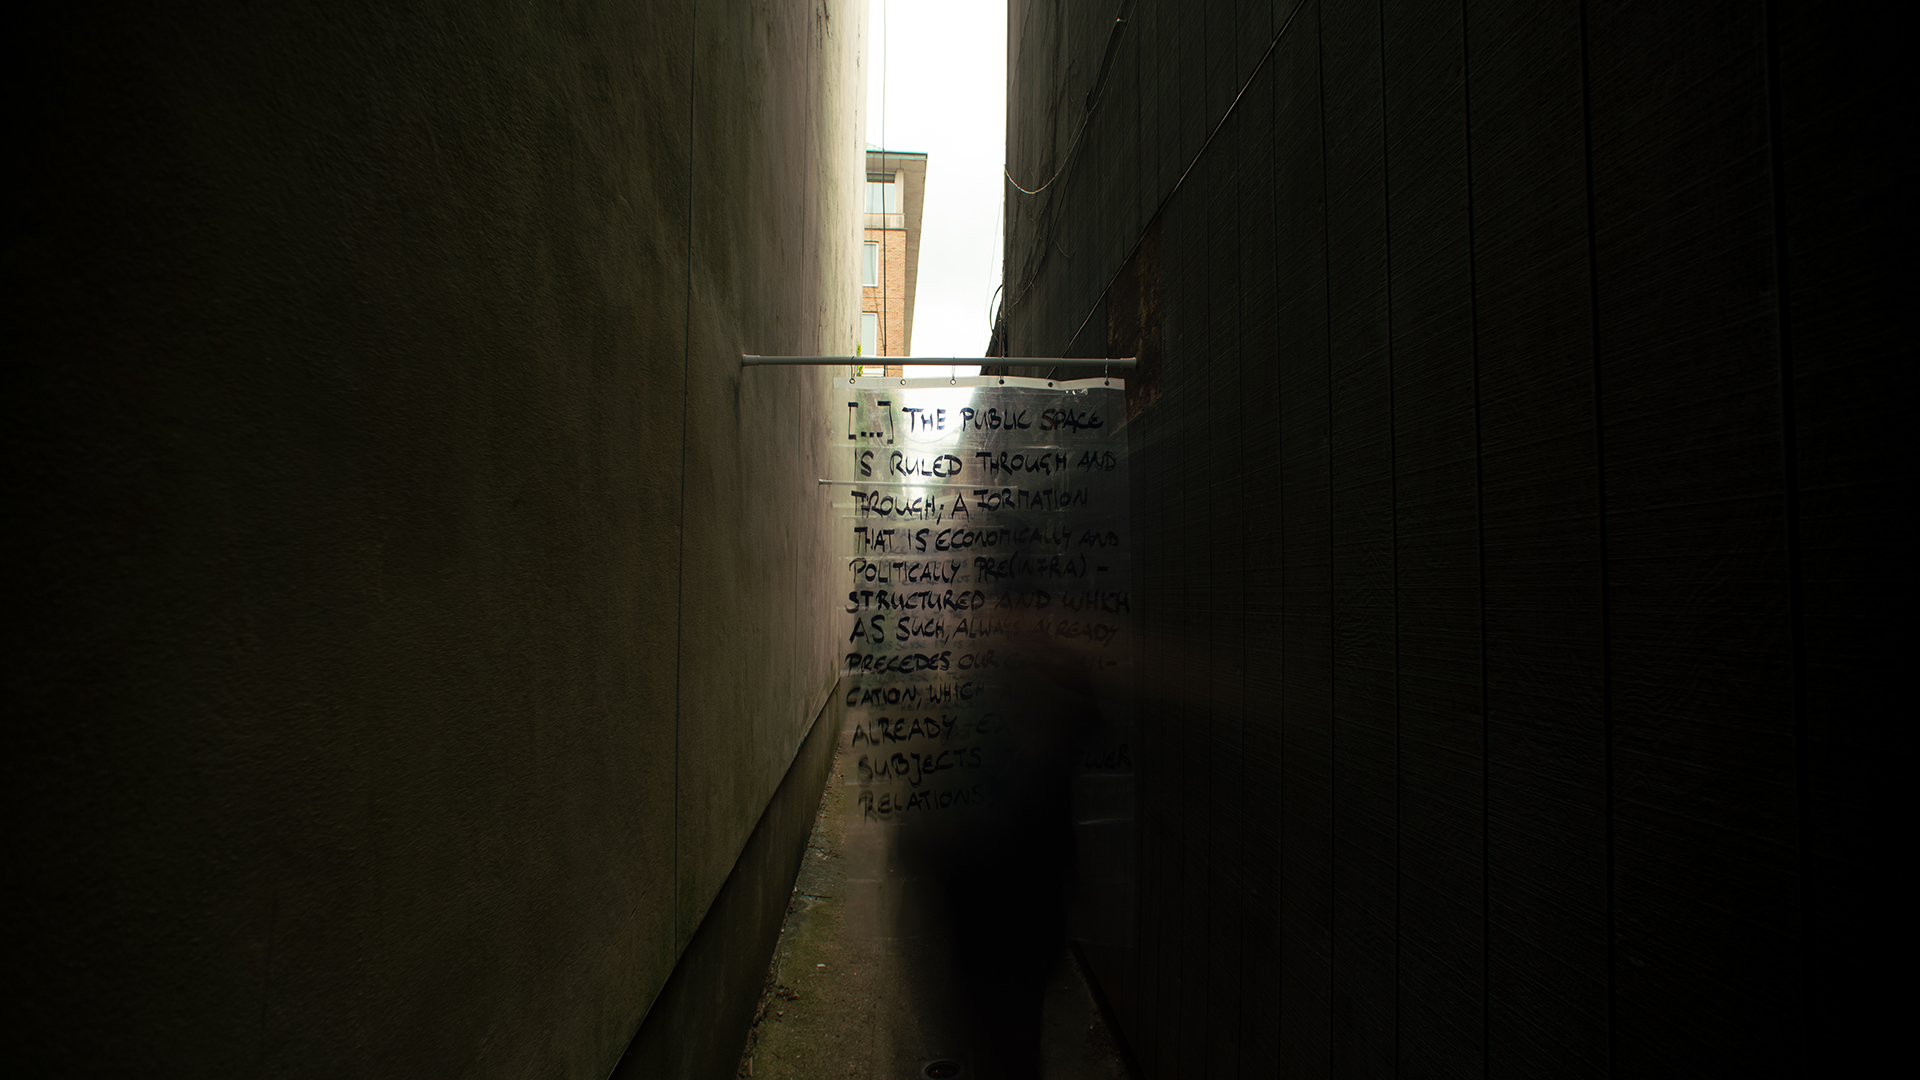 [...] THE PUBLIC SPACE
IS RULED THROUGH AND
TROUGH; A FORMATION
THAT IS ECONOMICALLY AND
POLITICALLY PRE(INFRA) -
STRUCTURED AND WHICH
AS SUCH, ALWAYS ALREADY
PRECEDES OUR
CATION, WHICH
ALREADY
SUBJECTS
RELATIONS